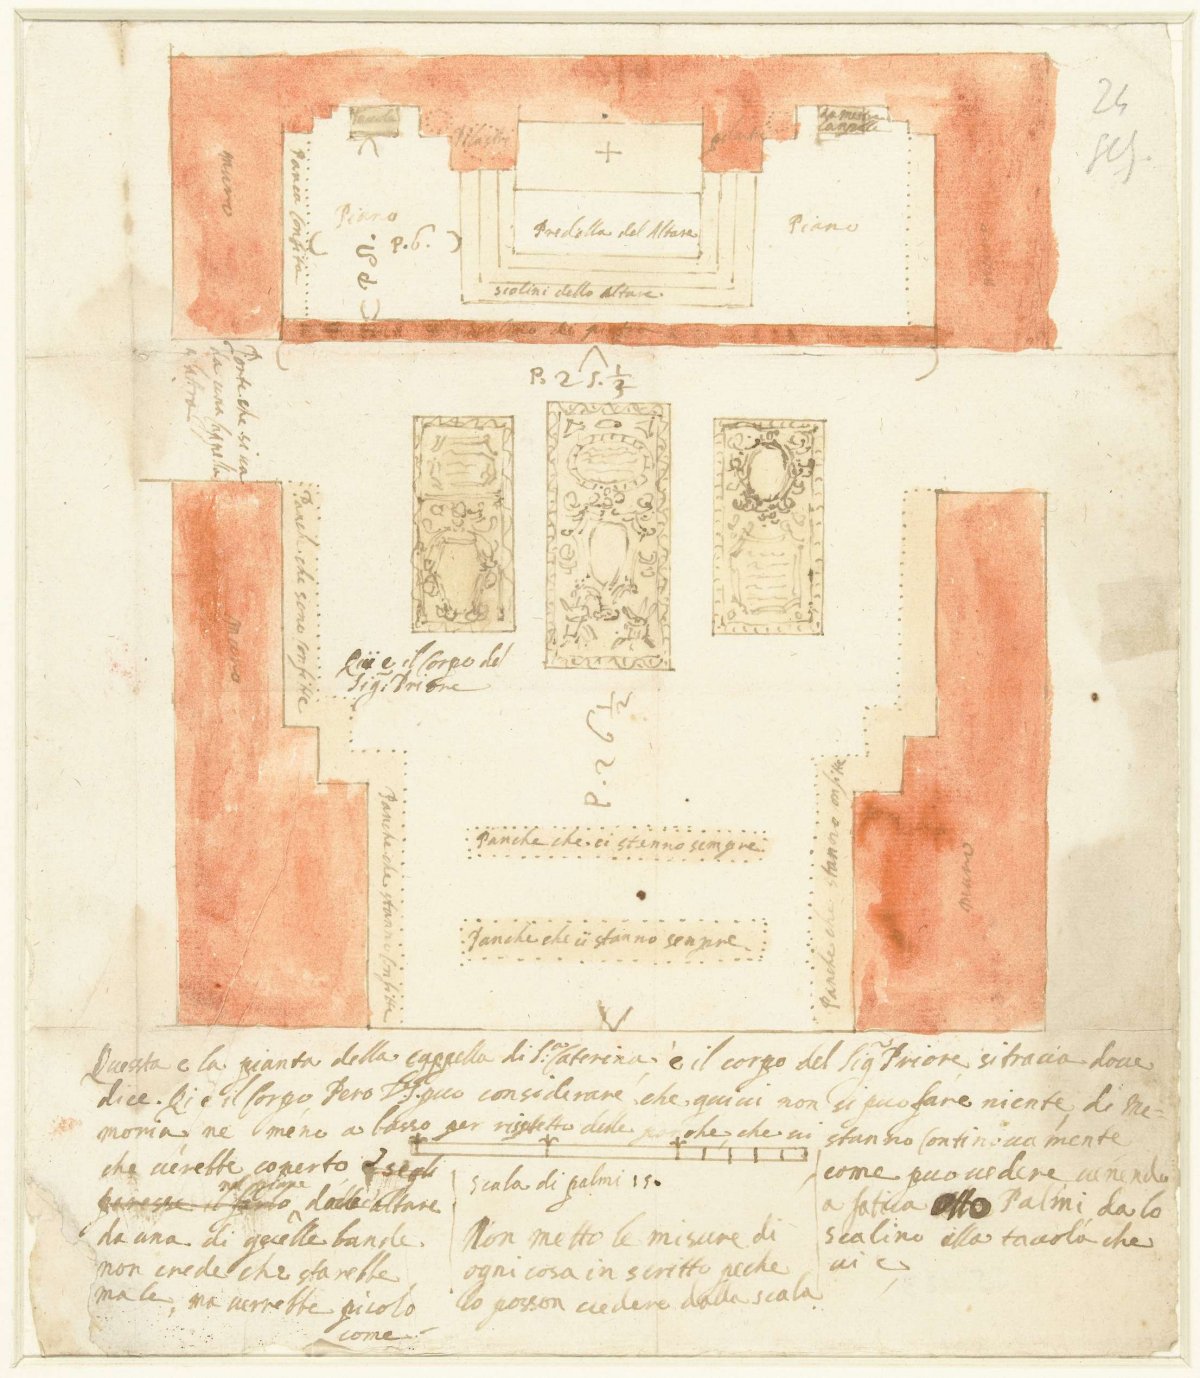 24
muro
Panca Confitta
Tavola
Pilastri
da mettere
Piano
P. 6.
Predella del Altare
Piano
scalini dello Altare
scalino di pietra
P. 25. 1/2
Porte che si va
da una Cappella
a l'altra
muro
Panche che sono confitte
Qui e il Corpo del
Sig.r Priore
P. 26 1/2
Panche che ci stanno sempre
Panche che ci stanno senpre
Panche che stanno Confitte
Panche che stanno confitte
muro
Questa e la pianta della cappella di S.ta Caterina, e il corpo del Sig.r Priore, si tracia dove
dice. Qi e il Corpo, Pero VS. puo considerare, che quivi non si puo fare niente, di Me-
moria, ne meno a basso per rispetto delle panche, che vi stanno Continovamente
che verebbe coperto, e se gli
paresse il farlo nel piano, dallo Altare
da una di quelle bande
non crede che starebbe
male, ma verrebbe picolo
come
scala di palmi 15.
Non metto le misure di
ogni cosa in scritto peche
lo posson vedere dalla scala
come puo vedere, venendo
a fatica otto Palmi, da lo
scalino alla tavola che
vi e